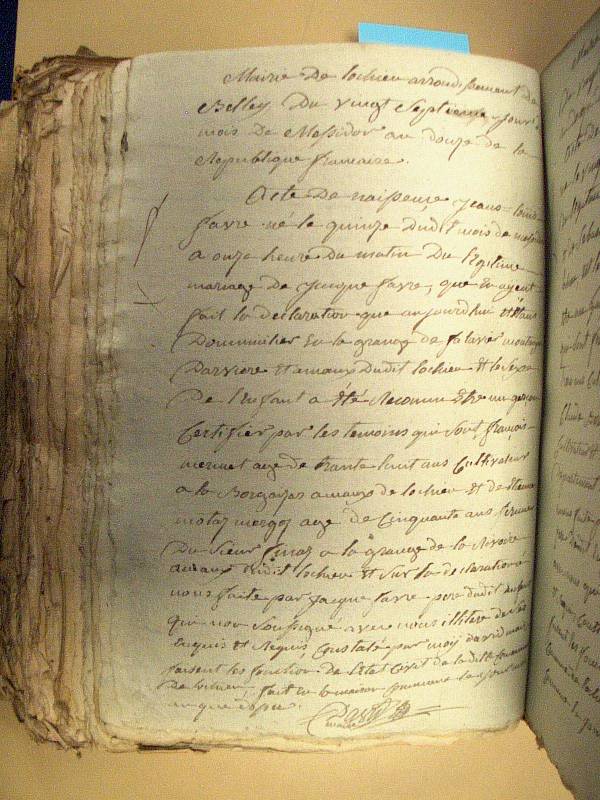 Mairie De lochieu arrondissement De
Belley. Du vingt Septieme jour
mois De Messidor an douze de la
Republique francaise.
Acte De naissence jean = louis
favre né le quinze Dudit mois de
a onze heure Du matin Du légitime
mariage De jacque favre, que en ayent
fait la declaration que aujourdhui
Dommicilier Sur la grange de montagne
Darviere et amaux Dudit lochieu et le Sexe
De l'enfant a été Reconnu être un garçon
Certifier par les temoins qui Sont françois
mermet age de trante huit ans Cultivateur
a la amaux de lochieu et de
age de Cinquante ans fermier
Du Sieur a la grange de la Riviere
amaux Dudit lochieu et sur la declaration a
nous faite par jacque favre pere dudit
que non Soussigné avec nous illitere de
enquis et Requis Constaté par moy david maire
faisent les fonction de l'etat Civil de la ditte Commune
De lochieu, fait en la maison Commune le jour
an que dessu.
David
maire